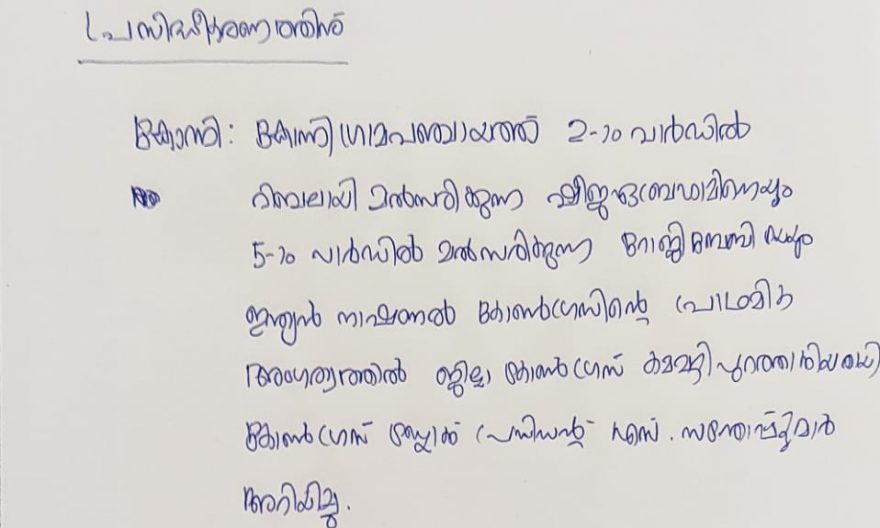 പ്രസിദ്ധീകരണത്തിന്
കോന്നി: കോന്നി ഗ്രാമപഞ്ചായത്ത് 2-ാo വാർഡിൽ
റിബലായി മൽസരിക്കുന്ന ഷീജ എബ്രഹാമിനെയും
5-ാo വാർഡിൽ മൽസരിക്കുന്ന റോജി ബേബിയെയും
ഇന്ത്യൻ നാഷണൽ കോൺഗ്രസിന്റെ പ്രാഥമിക
അംഗത്വത്തിൽ ജില്ലാ കോൺഗ്രസ് കമ്മറ്റി പുറത്താക്കിയതായി
കോൺഗ്രസ് ബ്ലോക്ക് പ്രസിഡന്റ് എസ്. സന്തോഷ്കുമാർ
അറിയിച്ചു.